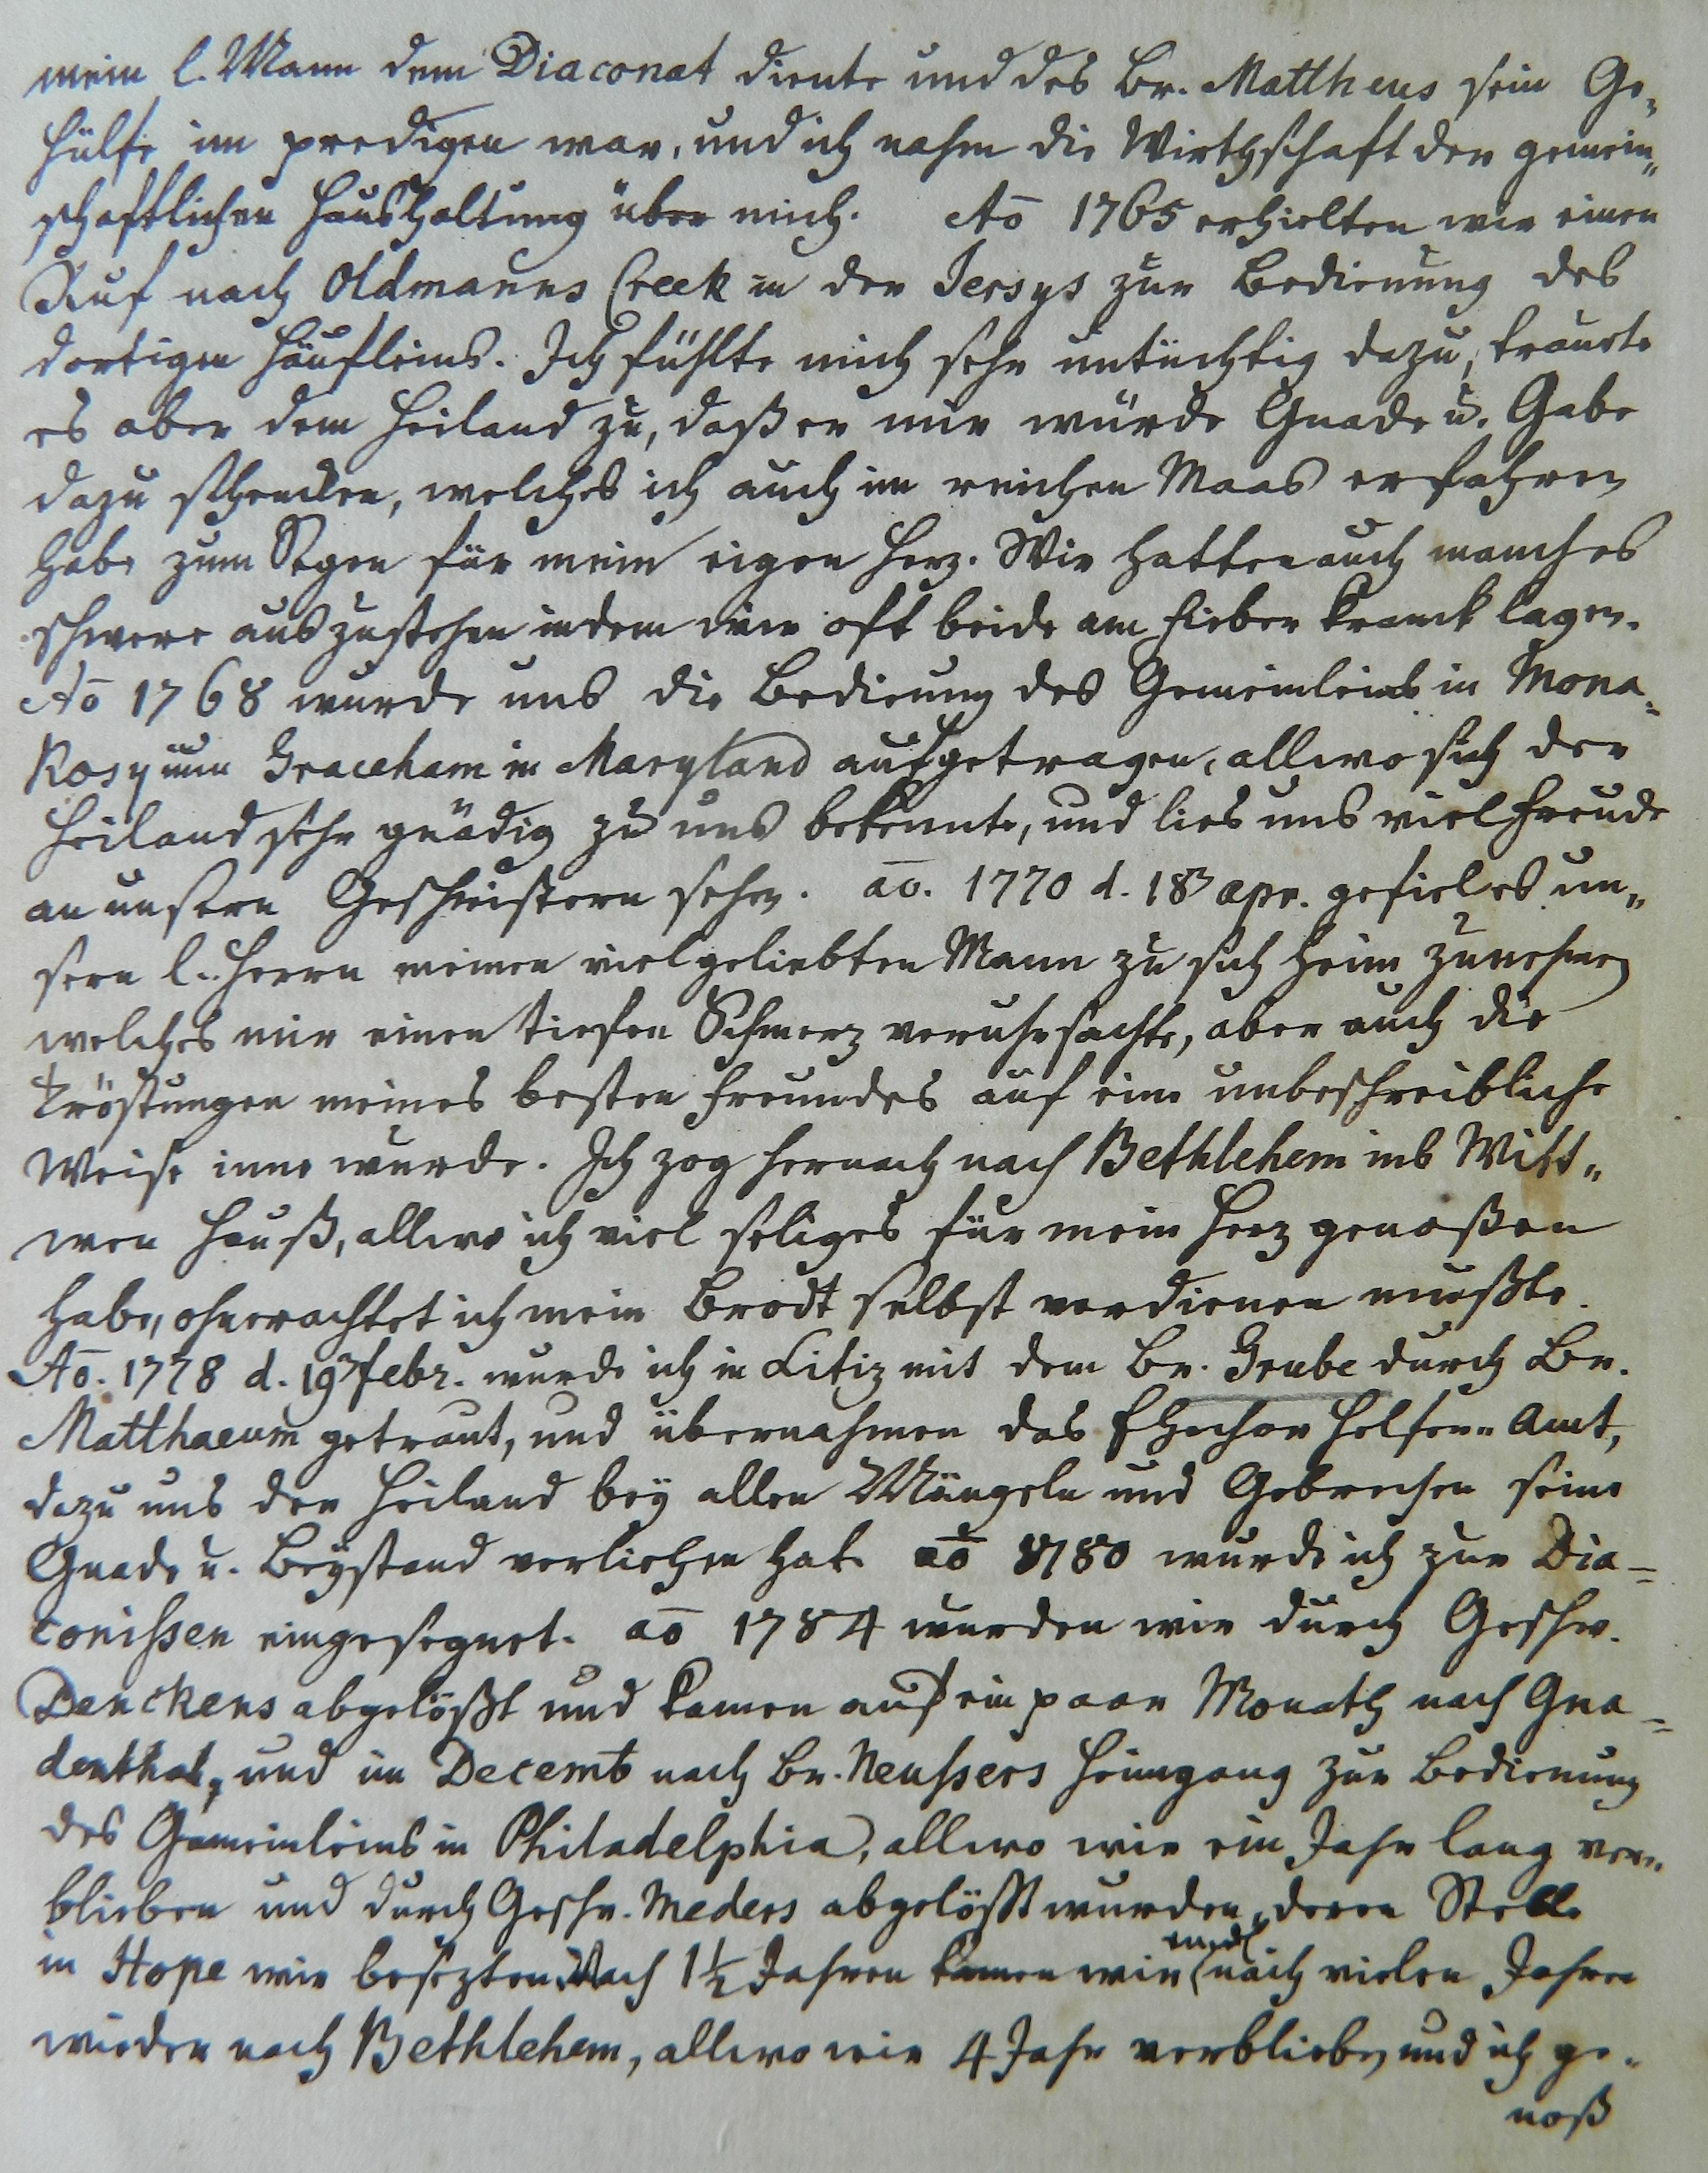 mein l. Mann dem Diaconat diente und des Br. Mattheus sein Ge,,
hülfe im predigen war, und ich nahm die Wirthschaft der gemein,,
schaftlichen Haushaltung über mich. Aō 1765 erhielten wir einen
Ruf nach Oldmanns Creek in der Jersys zur Bedienung des
dortigen Häufleins. Ich fühlte mich sehr untüchtig dazu, traute
es aber dem Heiland zu, daß er mir würde Gnade u. Gabe
dazu schencken, welches ich auch im reichen Maas erfahren
habe zum Segen für mein eigen Herz. Wir hatten auch manches
schwere auszustehen indem wir oft beide am Fieber kranck lagen.
Aō 1768 wurde uns die Bedienung des Gemeinleins in Mona,,
kosy nun Graceham in Maryland aufgetragen, allwo sich der
Heiland sehr gnädig zu uns bekennte, und lies uns viel Freude
an unsern Geschwistern sehen. aō. 1770 d. 18 apr. gefiel es un,,
sern l. Herrn meinen vielgeliebten Mann zu sich heim zunehmen
welches mir einen tiefen Schmerz veruhrsachte, aber auch die
Tröstungen meines besten Freundes auf eine unbeschreibliche
Weise inne wurde. Ich zog hernach nach Bethlehem ins Witt,,
wen Hauß, allwo ich viel seliges für mein Herz genoßen
habe, ohnerachtet ich mein Brodt selbst verdienen mußte.
Aō. 1778 d. 19 febr. wurde ich in Litiz mit dem Br. Grube durch Br.
Matthaeum getraut, und übernahmen das Ehechor Helfer,, Amt,
dazu uns der Heiland bey allen Mängeln und Gebrechen seine
Gnade u. Beystand verliehen hat. aō 1780 wurde ich zur Dia-
conissen eingesegnet. aō 1784 wurden wir durch Geschw.
Denckens abgelößt und kamen auf ein paar Monath nach Gna-
denthal, und im Decemb nach Br. Neussers Heimgang zur Bedienung
des Gemeinleins in Philadelphia, allwo wir ein Jahr lang ver,,
blieben und durch Geschw. Meders abgelößt wurden, deren Stelle
in Hope wir besezten. Nach 1½ Jahren kamen wir endl. nach vielen Jahren
wieder nach Bethlehem, allwo wir 4 Jahr verblieben, und ich ge-
noß